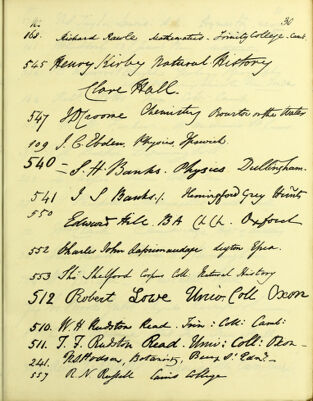 No. 30
168. Richard Rawle Mathematics. Trinity College. Camb.
545 Henry Kirby Natural History
Clare Hall.
547 J Croome Chemistry Bourton on the Water
109 J. C. Ebden, Physics, Ipswich.
540 – S. H. Banks. Physics Dullingham.
541 J S Banks. Hemingford Grey Hunts
550 Edward Hill BA Ch. Ch. Oxford
552 Charles John Leyton Essex.
553 Thos. Shelford Corpus Coll. Natural History
512 Robert Lowe Univ. Coll Oxon
510. W. H. Rudston Read. Trin: Coll: Camb:
511. T. F. Rudston Read. Univ: Coll: Oxon –
241. N. S. Hodson, Botanist, Bury St. Edmds. –
557 R. N. Russell Caius College